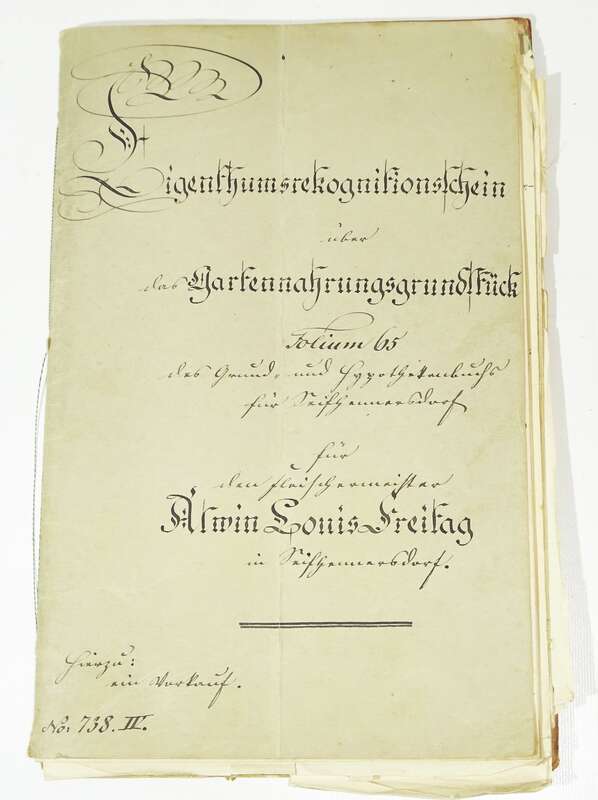 Eigenthumsrekognitionsschein
über
das Gartennahrungsgrundstück
Folium 65
des Grund- und Hypothekenbuchs
für Seifhennersdorf
für
den Fleischermeister
Alwin Louis Freitag
in Seifhennersdorf.
Hierzu:
ein Vorkauf.
No: 738. IV.